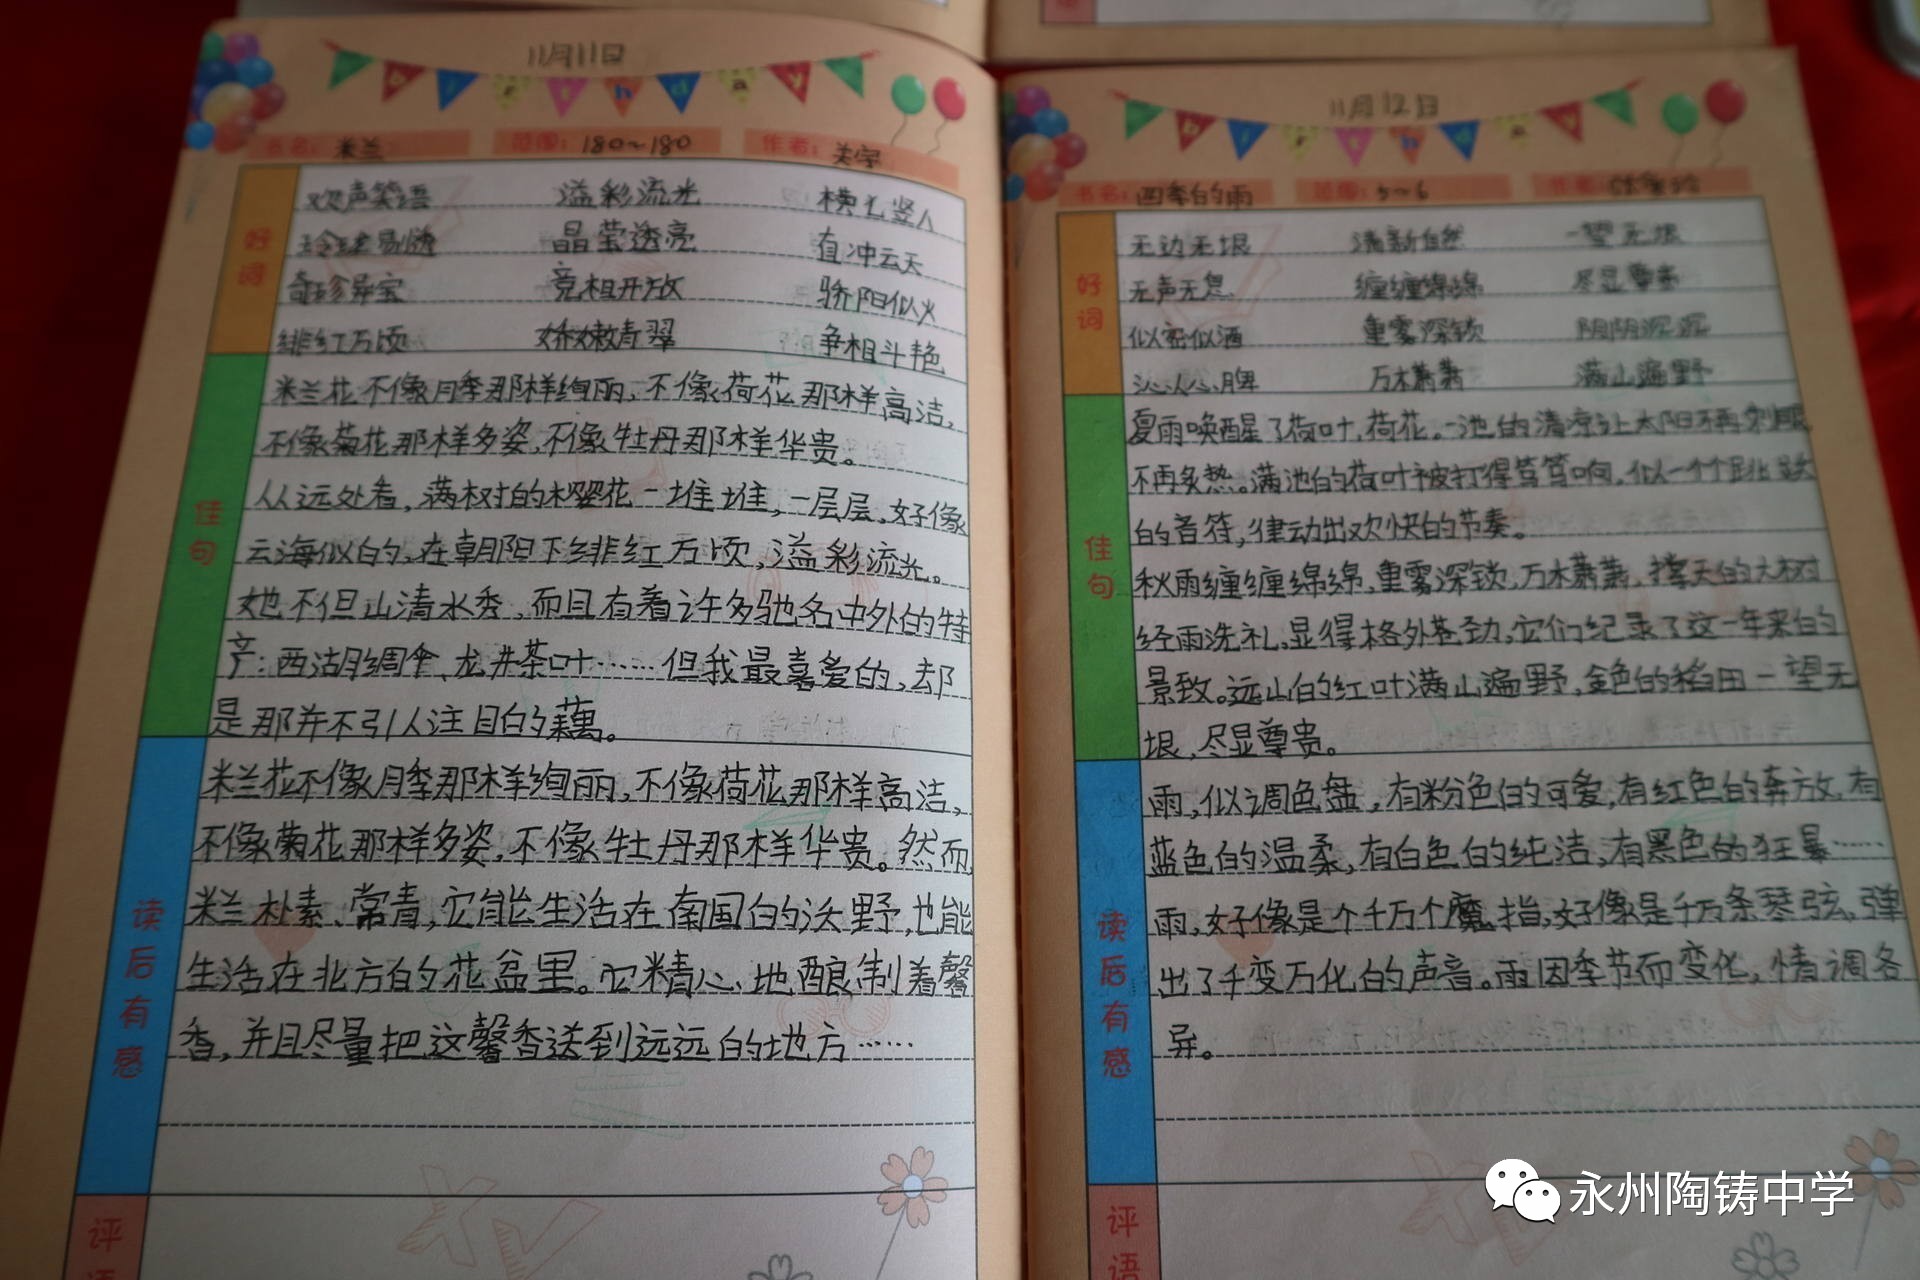 11月11日
birthday
书名: 米兰 范围: 180~180 作者: 关字
好词
欢声笑语 溢彩流光 横七竖八
玲珑剔透 晶莹透亮 直冲云天
奇珍异宝 竞相开放 骄阳似火
绯红万顷 娇嫩青翠 争相斗艳
佳句
米兰花不像月季那样绚丽,不像荷花那样高洁,
不像菊花那样多姿,不像牡丹那样华贵。
从远处看,满树的樱花一堆堆,一层层,好像
云海似的,在朝阳下绯红万顷,溢彩流光。
她不但山清水秀,而且有着许多驰名中外的特
产:西湖绸伞、龙井茶叶……但我最喜爱的,却
是那并不引人注目的藕。
读后有感
米兰花不像月季那样绚丽,不像荷花那样高洁,
不像菊花那样多姿,不像牡丹那样华贵。然而,
米兰朴素、常青,它能生活在南国的沃野,也能
生活在北方的花盆里。它精心地酿制着馨
香,并且尽量把这馨香送到远远的地方……
评语
11月12日
birthday
书名: 四季的雨 范围: 5~6 作者:
好词
无边无垠 清新自然 一望无垠
无声无息 缠缠绵绵 尽显尊贵
似密似洒 重雾深锁 阴阴沉沉
沁人心脾 万木萧萧 满山遍野
佳句
夏雨唤醒了荷叶,荷花。一池的清凉让太阳不再刺眼
不再炙热。满池的荷叶被打得笃笃响,似一个个跳跃
的音符,律动出欢快的节奏。
秋雨缠缠绵绵,重雾深锁,万木萧萧,撑天的大树
经雨洗礼,显得格外苍劲,它们纪录了这一年来的
景致。远山的红叶满山遍野,金色的稻田一望无
垠,尽显尊贵。
读后有感
雨,似调色盘,有粉色的可爱,有红色的奔放,有
蓝色的温柔,有白色的纯洁,有黑色的狂暴……
雨,好像是个千万个魔指,好像是千万条琴弦,弹
出了千变万化的声音。雨因季节而变化,情调各
异。
评语
永州陶铸中学